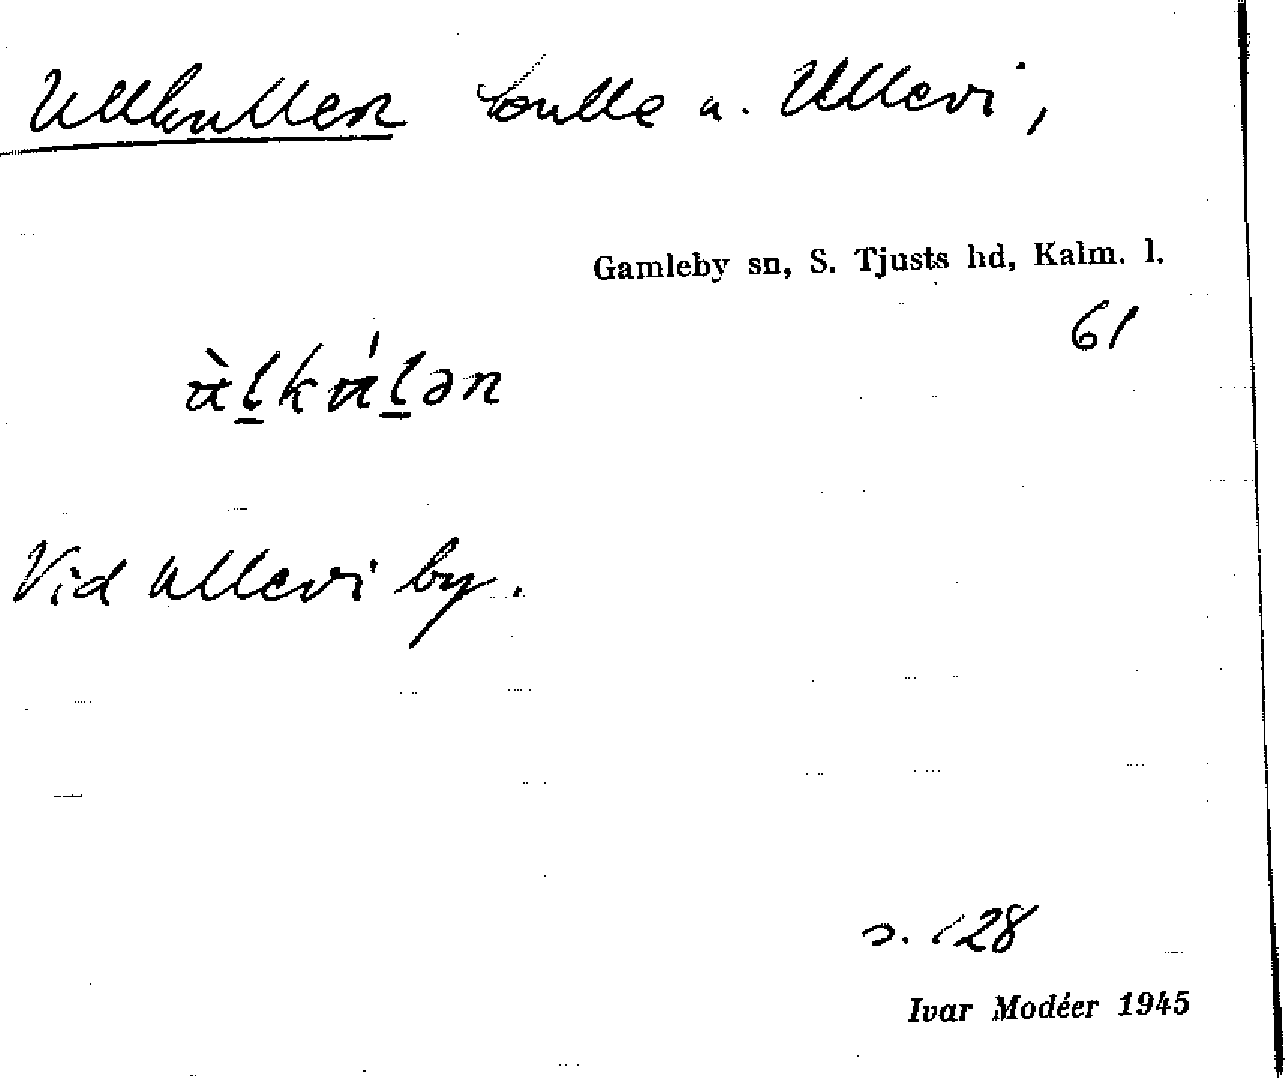 Ullkullen kulle n. Ullevi,
Gamleby sn, S. Tjusts hd, Kalm. l.
61
Vid Ullevi by.
s. 128
Ivar Modéer 1945